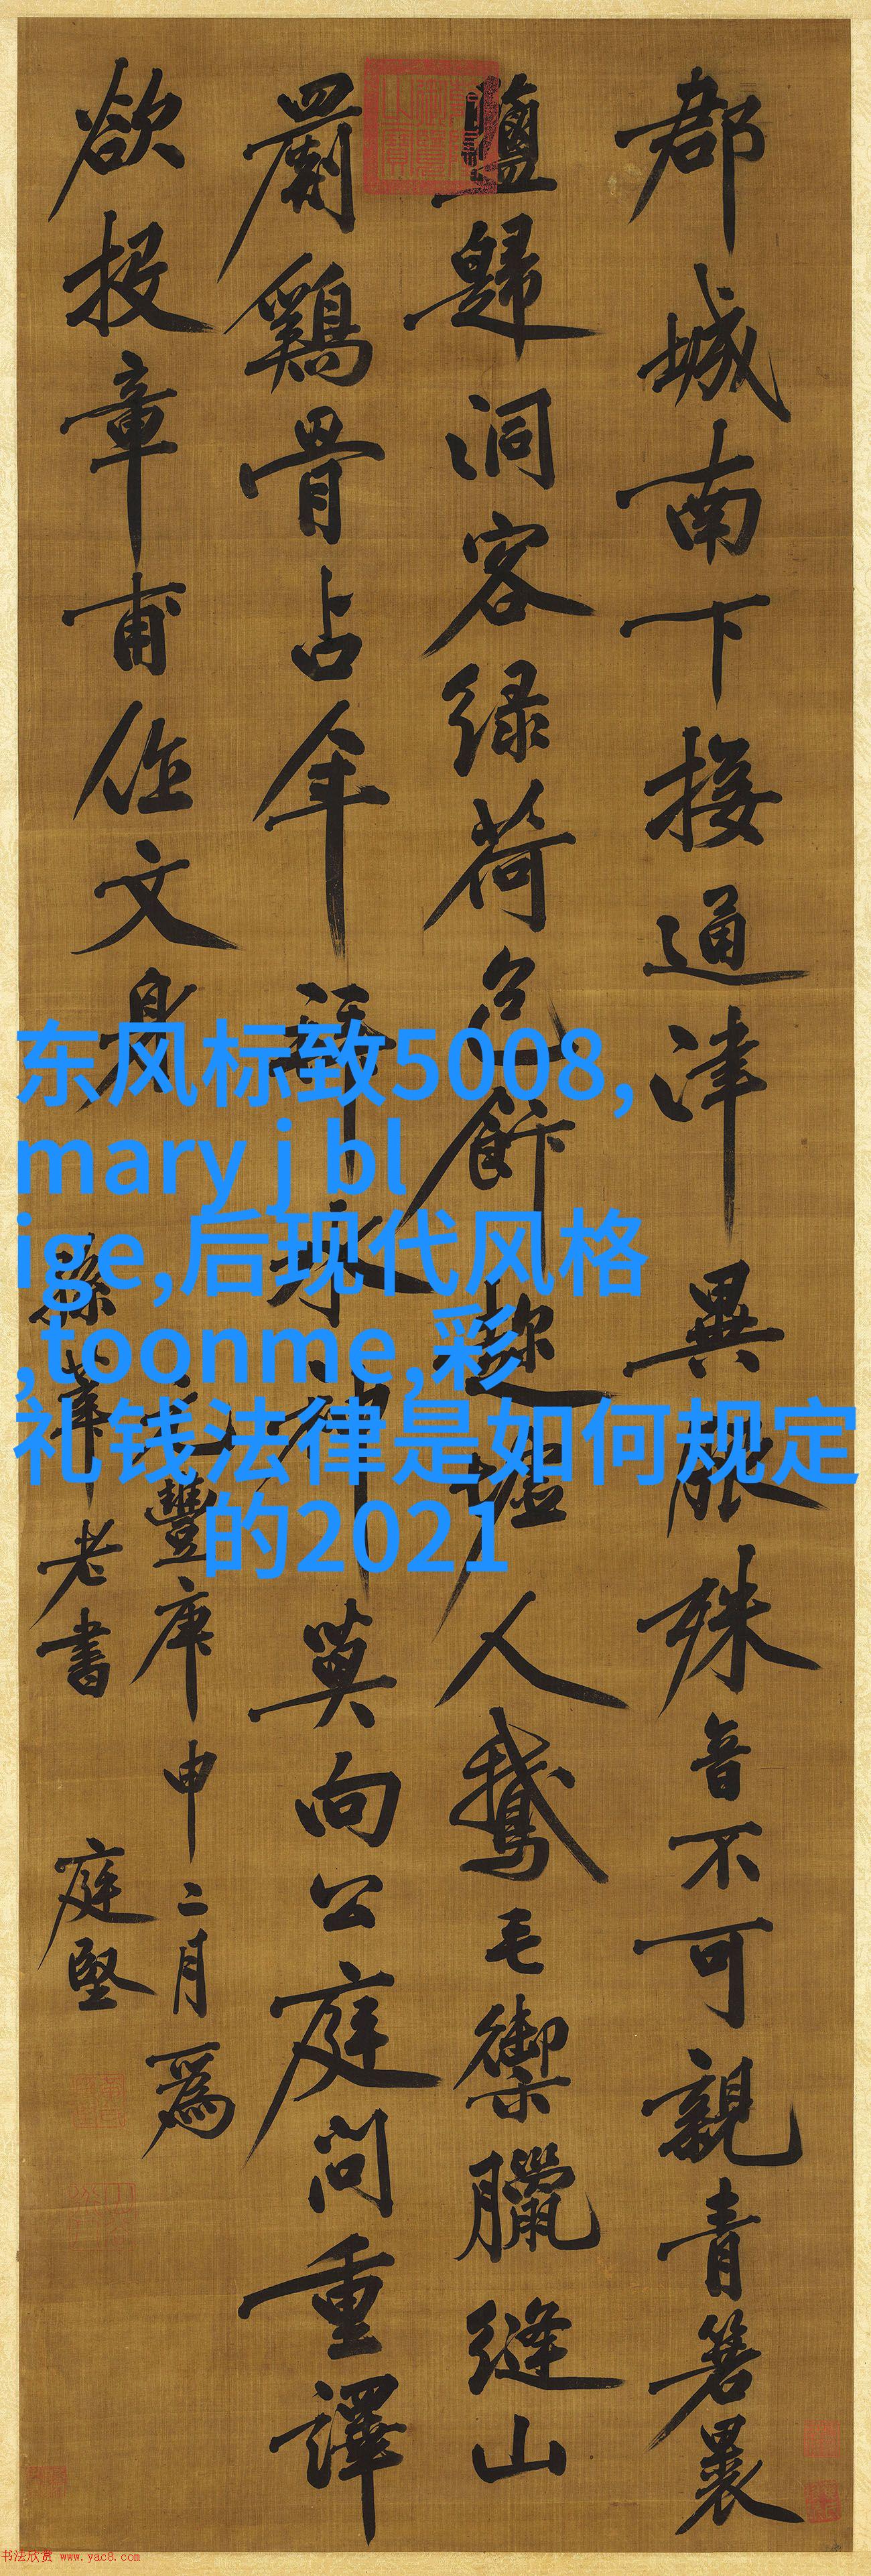 郡城南下接通津異服殊音不可親青箬裹
鹽歸洞客緑荷包飰趂墟人鵝毛禦臘縫山
罽鷄骨占年拜水神莫向公庭問重譯
欲投章甫作文身
元豐庚申二月爲
孫莘老書 庭堅
东风标致5008,
mary j bl
ige,后现代风格
,toonme,彩
礼钱法律是如何规定
的2021
书法欣赏 www.yac8.com